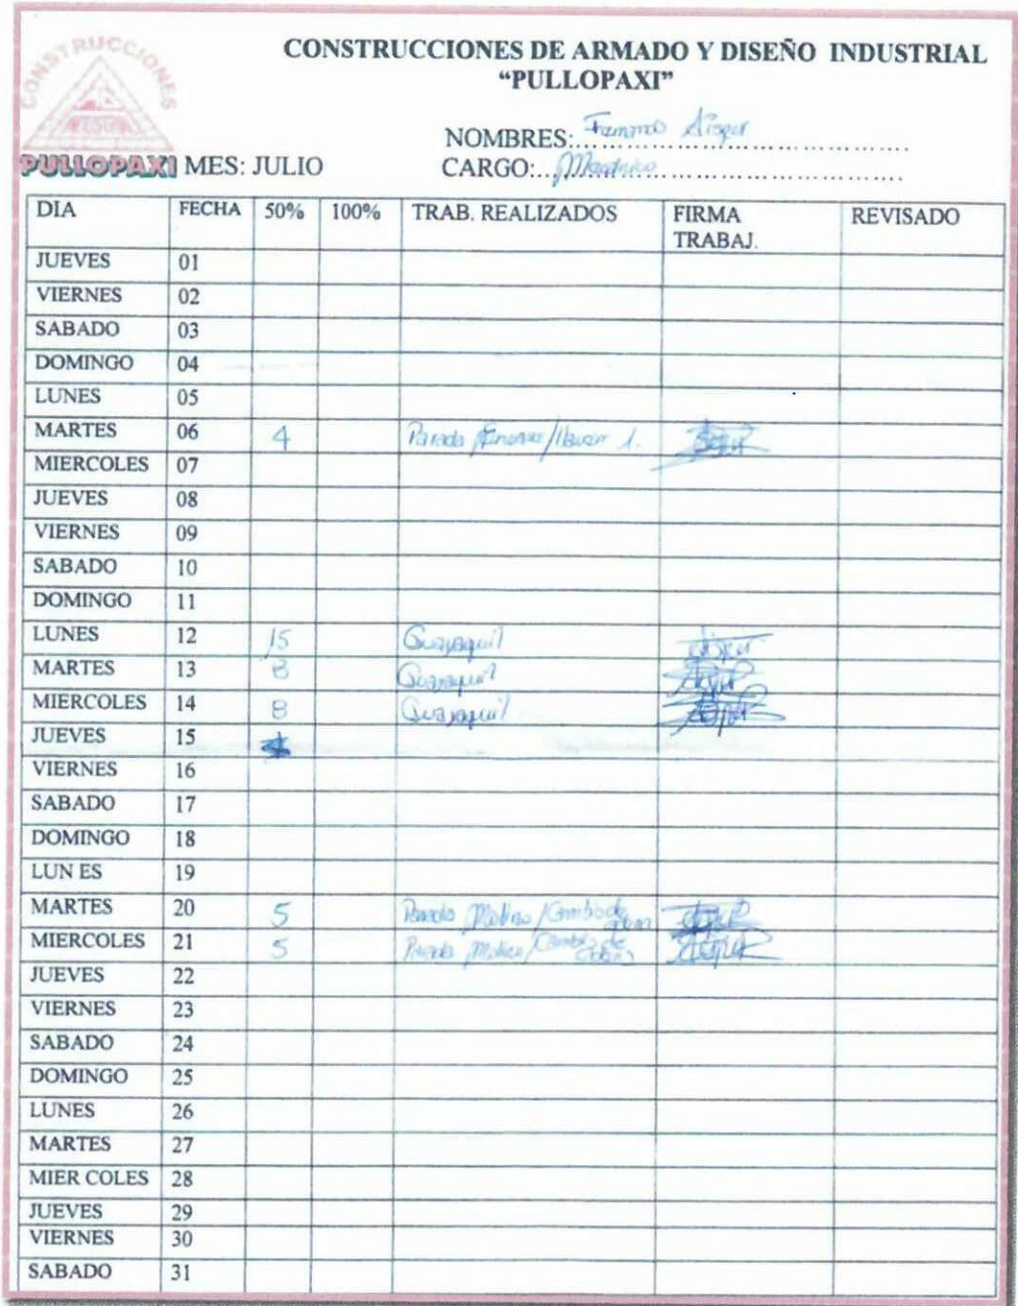 CONSTRUCCIONES
PULLOPAXI
CONSTRUCCIONES DE ARMADO Y DISEÑO INDUSTRIAL
“PULLOPAXI”
NOMBRES: Fernando
MES: JULIO CARGO: Mecánico
DIA FECHA 50% 100% TRAB. REALIZADOS FIRMA TRABAJ. REVISADO
JUEVES 01
VIERNES 02
SABADO 03
DOMINGO 04
LUNES 05
MARTES 06 4 Parada
MIERCOLES 07
JUEVES 08
VIERNES 09
SABADO 10
DOMINGO 11
LUNES 12 15 Guayaquil
MARTES 13 8 Guayaquil
MIERCOLES 14 8 Guayaquil
JUEVES 15
VIERNES 16
SABADO 17
DOMINGO 18
LUN ES 19
MARTES 20 5 Parada Molino / Cambio de
MIERCOLES 21 5 Parada Molino / Cambio de
JUEVES 22
VIERNES 23
SABADO 24
DOMINGO 25
LUNES 26
MARTES 27
MIER COLES 28
JUEVES 29
VIERNES 30
SABADO 31